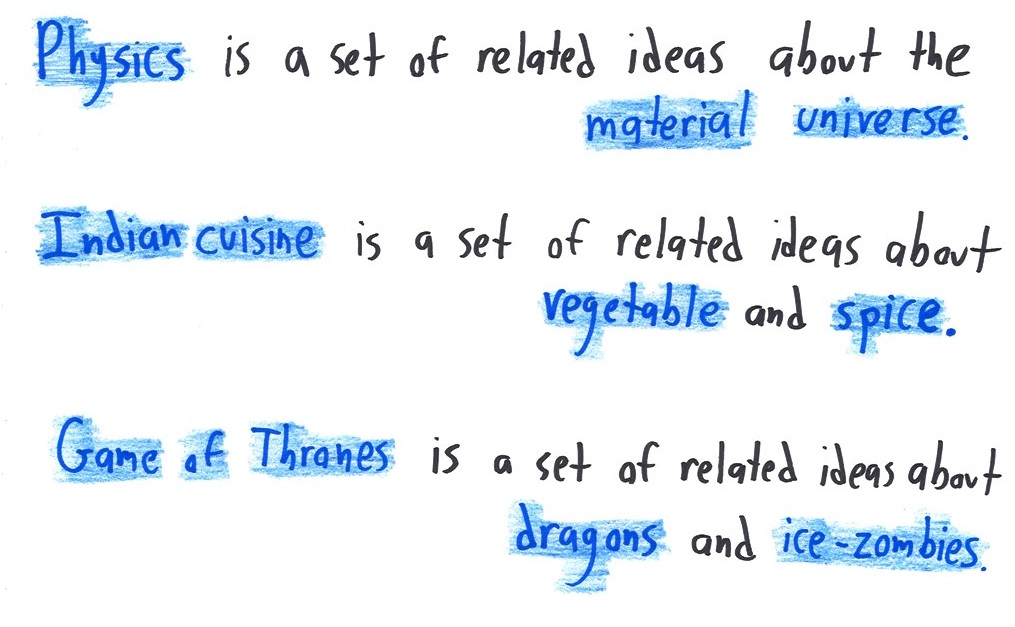 Physics is a set of related ideas about the
material universe.
Indian cuisine is a set of related ideas about
vegetable and spice.
Game of Thrones is a set of related ideas about
dragons and ice-zombies.